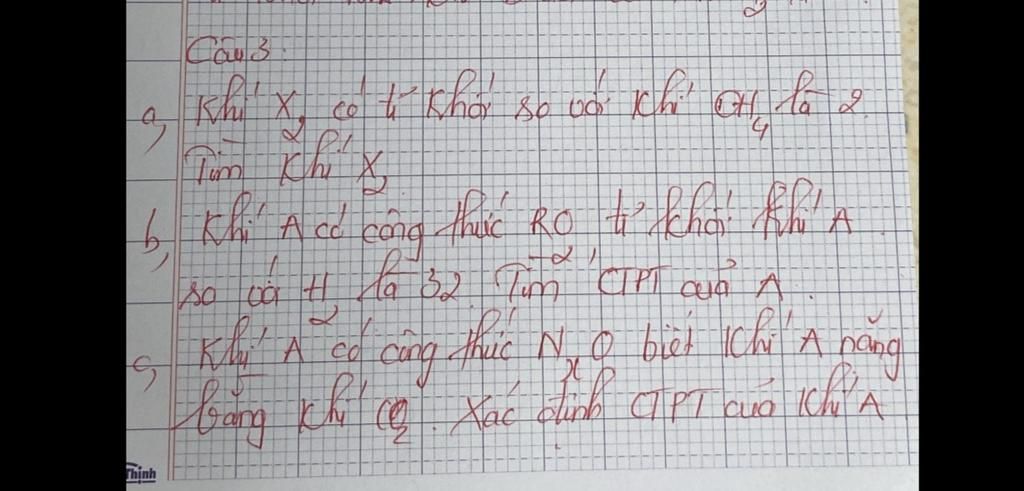 Câu 3:
a, Khí X₂ có tỉ khối so với khí CH₄ là 2.
Tìm khí X₂
b, Khí A có công thức RO₂, tỉ khối khí A
so với H₂ là 32. Tìm CTPT của A.
c, Khí A có công thức NₓO biết khí A nặng
bằng khí CO₂. Xác định CTPT của khí A
Thịnh